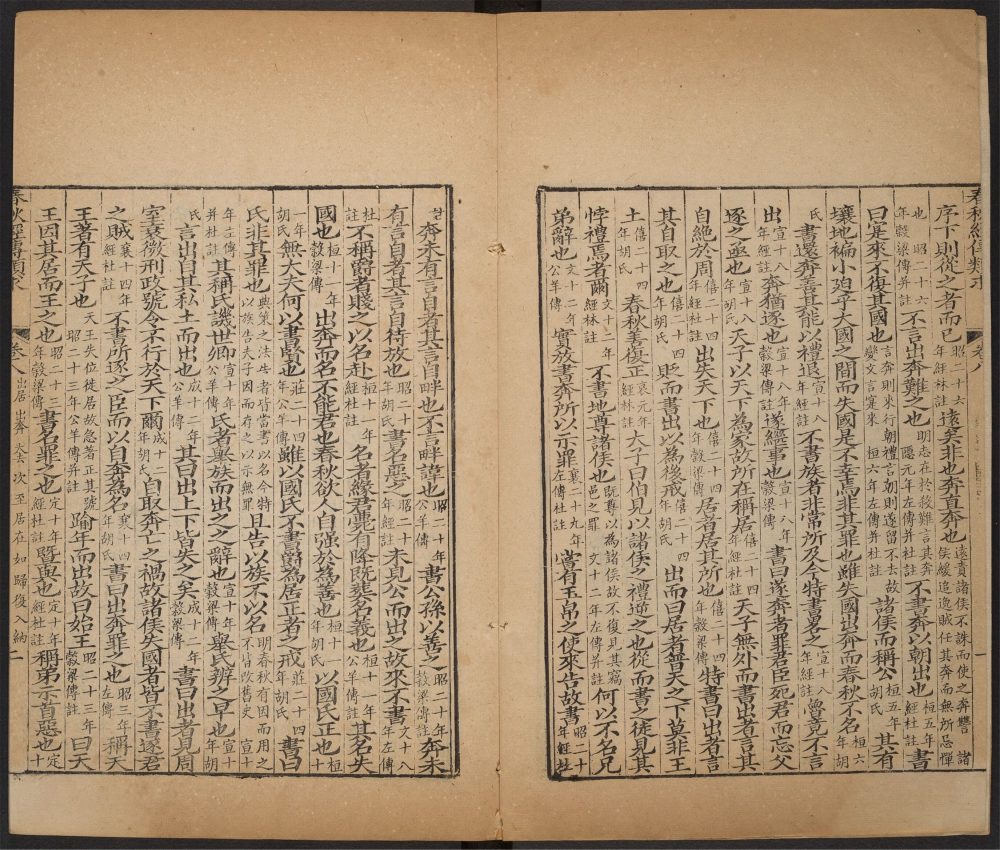 春秋經傳類求 卷八 一
序下則從之者而已昭二十六年經林註遠矣非也奔直奔也遠責諸侯不誅而使之奔讐 諸侯緩追逸賊任其奔而無所忌憚
也 昭二十六年穀梁傳并註不言出奔難之也明志在於殺難言其奔 隱元年左傳并杜註不書奔以朝出也桓五年經杜註書
曰寔來不復其國也言奔則來行朝禮言朝則遂留不去故變文言寔來 桓六年左傳并杜註諸侯而稱公桓五年胡氏其有
壤地褊小迫乎大國之間而失國是不幸焉非其罪也雖失國出奔而春秋不名桓六年胡
氏書還奔善其能以禮退宣十八年經註不書族者非常所及今特書畧之宣十八年經註曷竟不言
出宣十八年杜註奔猶逐也宣十八年穀梁傳遂繼事也宣十八年穀梁傳書曰遂奔者罪君臣死君而忘父
逐之亟也宣十八年胡氏天子以天下為家故所在稱居僖二十四年經杜註天子無外而書出者言
自絕於周僖二十四年經杜註出失天下也僖二十四年穀梁傳居者居其所也僖二十四年穀梁傳特書曰出者言
其自取之也僖二十四年胡氏貶而書出以為後戒僖二十四年胡氏出而曰居者普天之下莫非王
土僖二十四年胡氏春秋善復正哀元年經林註大子曰伯見以諸侯之禮逆之也從而書之徒見其
悖禮焉者爾文十二年經林註不書地尊諸侯也既尊以為諸侯故不復見其竊邑之罪 文十二年左傳并註何以不名兄
弟辭也文十二年公羊傳實放書奔所以示罪襄二十九年左傳杜註當有玉帛之使來告故書昭二十年經杜
註奔未有言自者其言自畔也不言畔諱也昭二十年公羊傳書公孫以善之昭二十年穀梁傳註奔未
有言自者其言自待放也昭二十年穀梁傳註書名惡之昭二十年經杜註未見公而出之故來不書文十八年左傳
杜註不稱爵者賤之以名赴桓十一年經杜註名者緣君薨有降既葬名義也桓十一年公羊傳註其名失
國也桓十一年穀梁傳出奔而名不能君也春秋欲人自强於為善也桓十一年胡氏以國氏正也桓十
一年胡氏無大夫何以書賢也莊二十四年公羊傳雖以國氏不書爵為居正者之戒莊二十四年胡氏書曰
氏非其罪也典策之法告者皆當書以名今特以族告夫子因而存之以示無罪且告以族不以名明春秋有因而用之不皆改舊史 宣十
年左傳并杜註其稱氏譏世卿宣十年公羊傳氏者舉族而出之之辭也宣十年穀梁傳舉氏辨之早也宣十年胡
氏言出自其私土而出也成十二年公羊傳其曰出上下皆失之矣成十二年穀梁傳書曰出者見周
室衰微刑政號令不行於天下爾成十二年胡氏自取奔亡之禍故諸侯失國者皆不書逐君
之賊襄十四年杜註不書所逐之臣而以自奔為名襄十四年胡氏書曰出奔罪之也昭三年左傳稱天
王著有天子也天王失位徙居故急著正其號 昭二十三年公羊傳并註踰年而出故曰始王昭二十三年穀梁傳註曰天
王因其居而王之也昭二十三年穀梁傳書名罪之也定十年經杜註暨與也定十年經杜註稱弟示首惡也定十
春秋經傳類求 卷八 出居 出奔 大去 次 至 居 在 如 歸 復 入 納 二